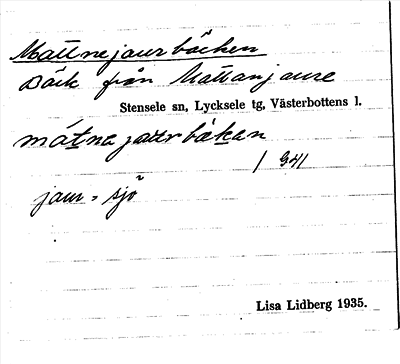 Mattnejaurbäcken
Bäck från Mattanjaure
Stensele sn, Lycksele tg, Västerbottens l.
mátna jaurbäkan
/ 941
jaur = sjö
Lisa Lidberg 1935.